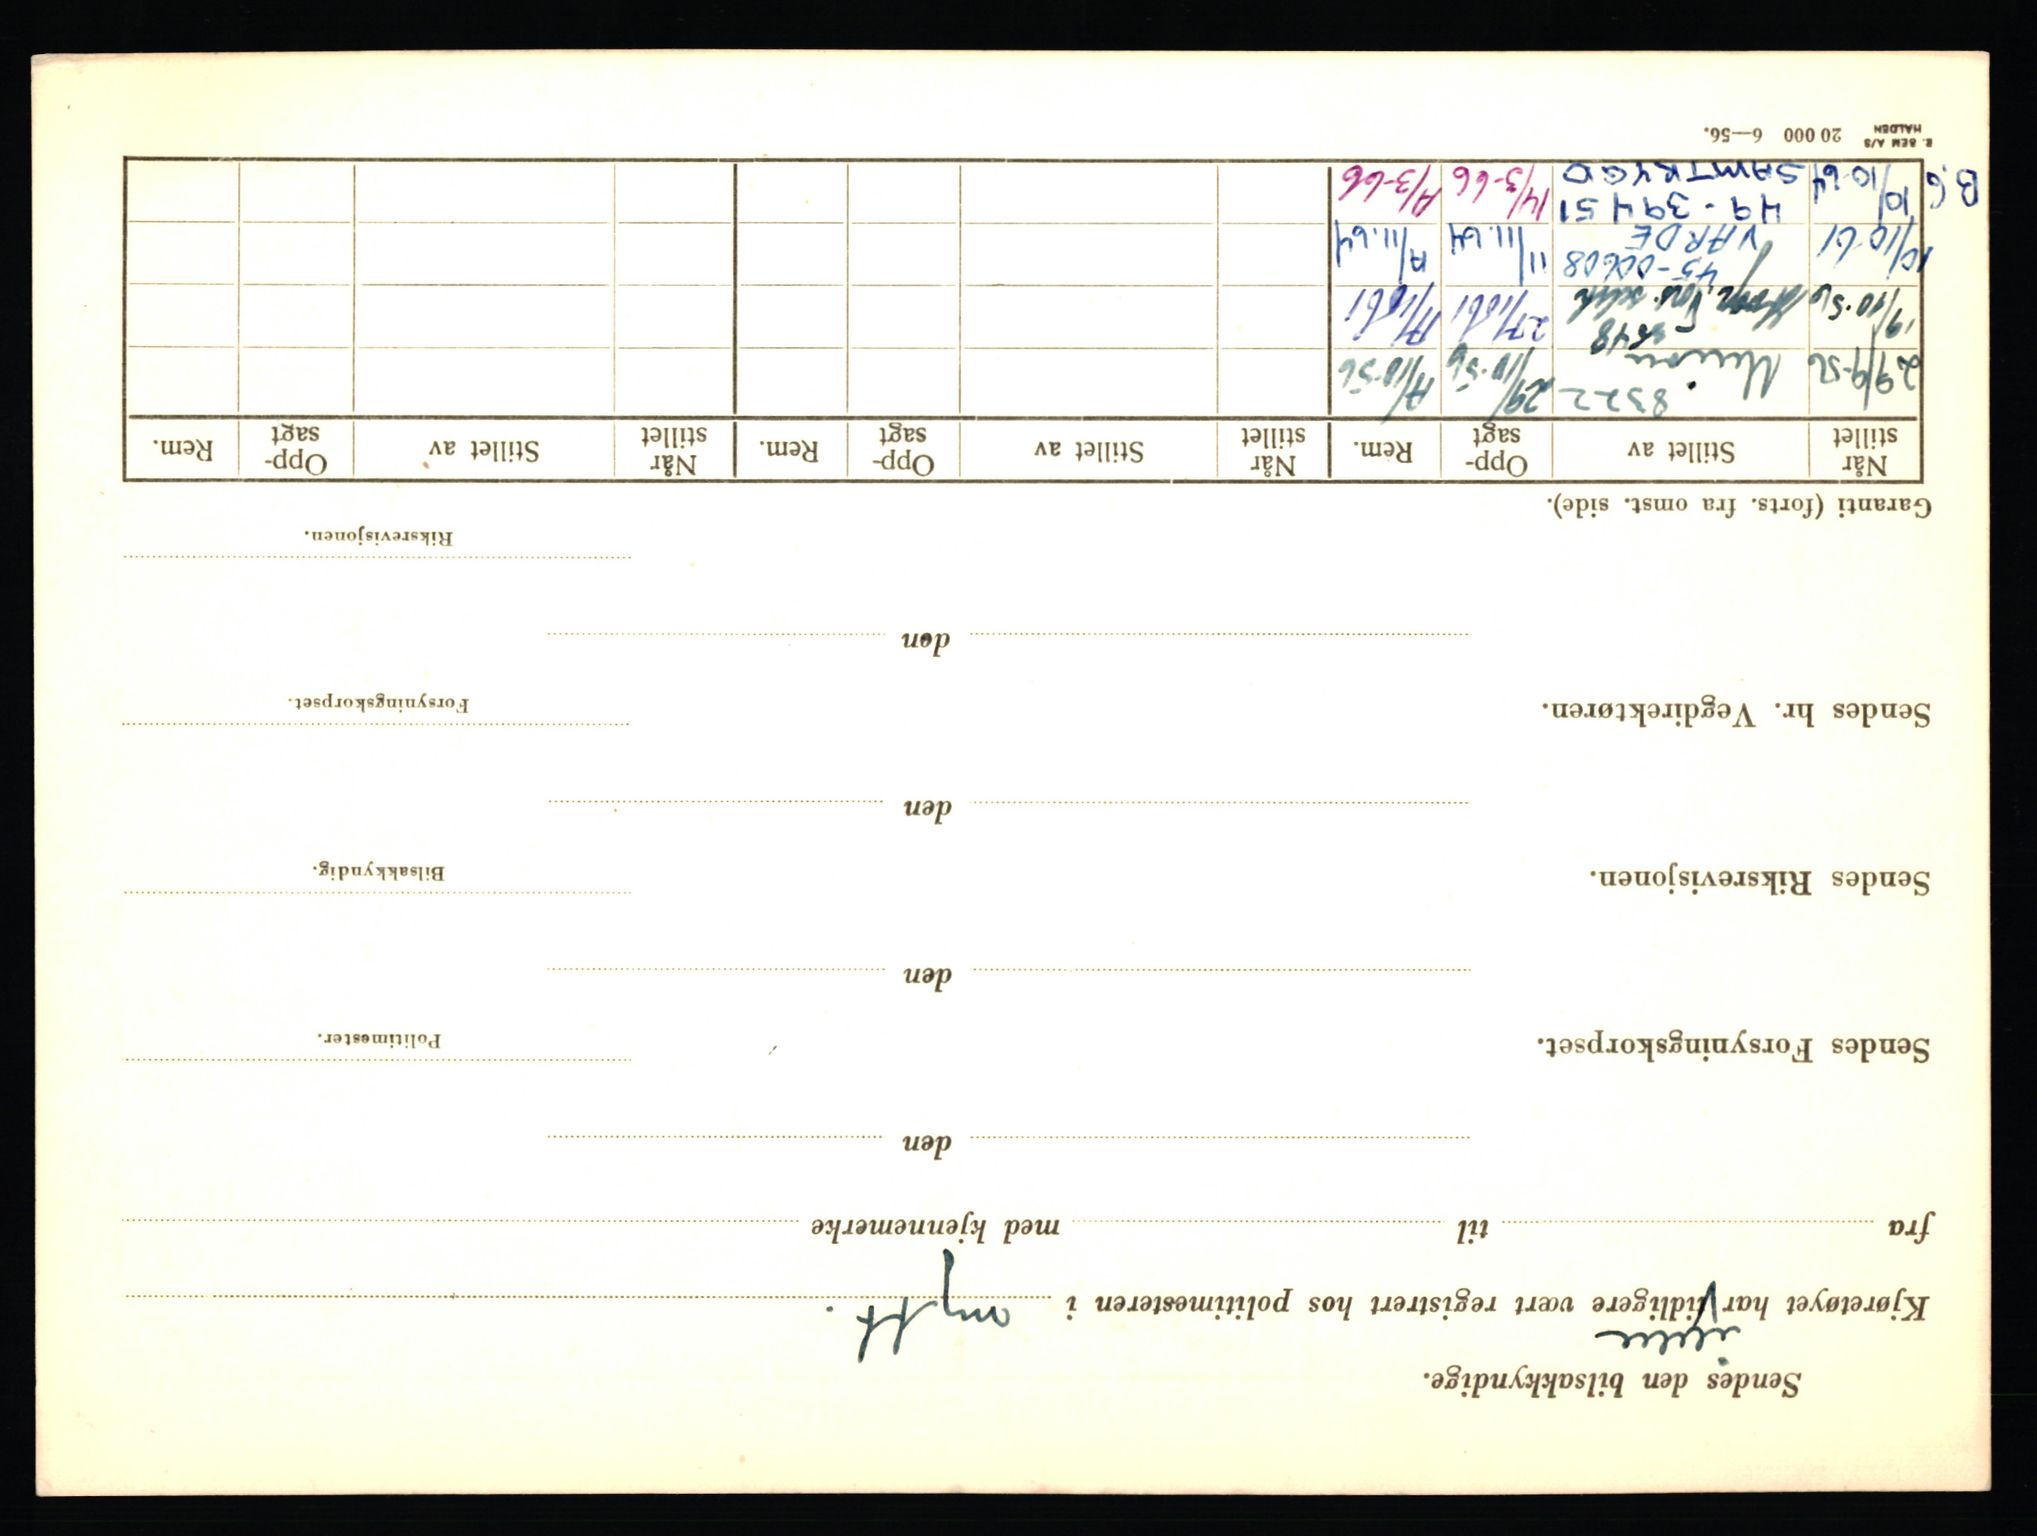 Sendes den bilsakkyndige.
ikke
Kjøretøyet har tidligere vært registrert hos politimesteren i
fra til med kjennemerke
den
Politimester.
Sendes Forsyningskorpset.
den
Bilsakkyndig.
Sendes Riksrevisjonen.
den
Forsyningskorpset.
Sendes hr. Vegdirektøren.
den
Riksrevisjonen.
Garanti (forts. fra omst. side).
Når stillet Stillet av Opp-sagt Rem. Når stillet Stillet av Opp-sagt Rem. Når stillet Stillet av Opp-sagt Rem.
8322
29/9-56 29/10-56 A/10-56
5548
19/10-56 27/1061 A/1061
45-00608
10/10-61 VARDE 11/11.64 A/11.64
49-39451
B.G 10/10-64 SAMTRYGD 14/3-66 A/3-66
E. SEM A/S HALDEN 20 000 6—56.